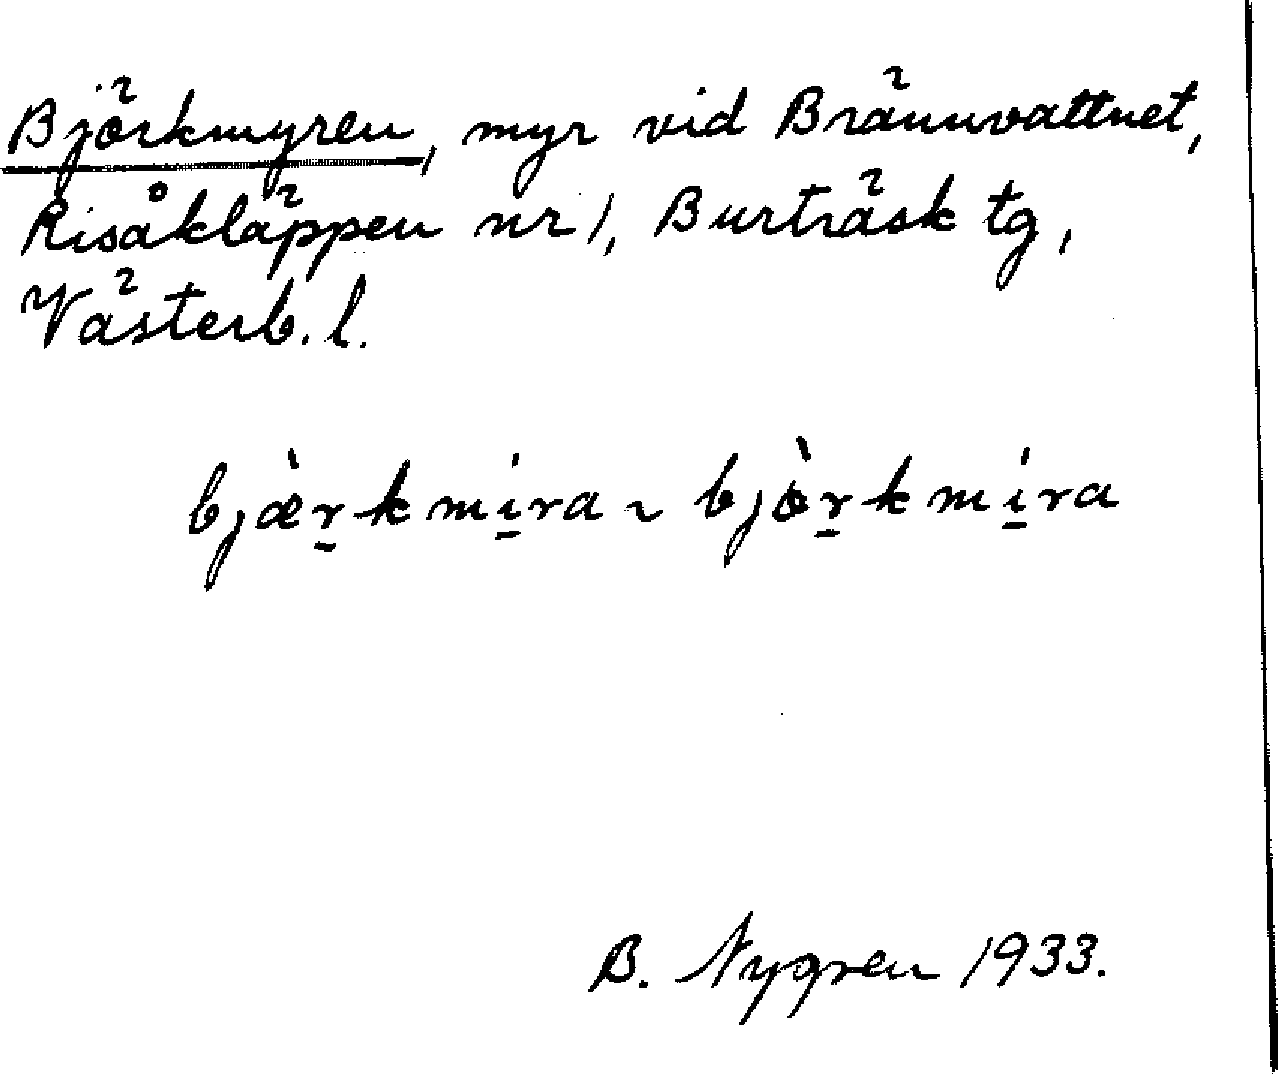 Björkmyren, myr vid Brännvattnet,
Risåkläppen nr 1, Burträsk tg,
Västerb. l.
bjæ̀r̠kmi̠ra ~ bjòr̠kmi̠ra
B. Nygren 1933.